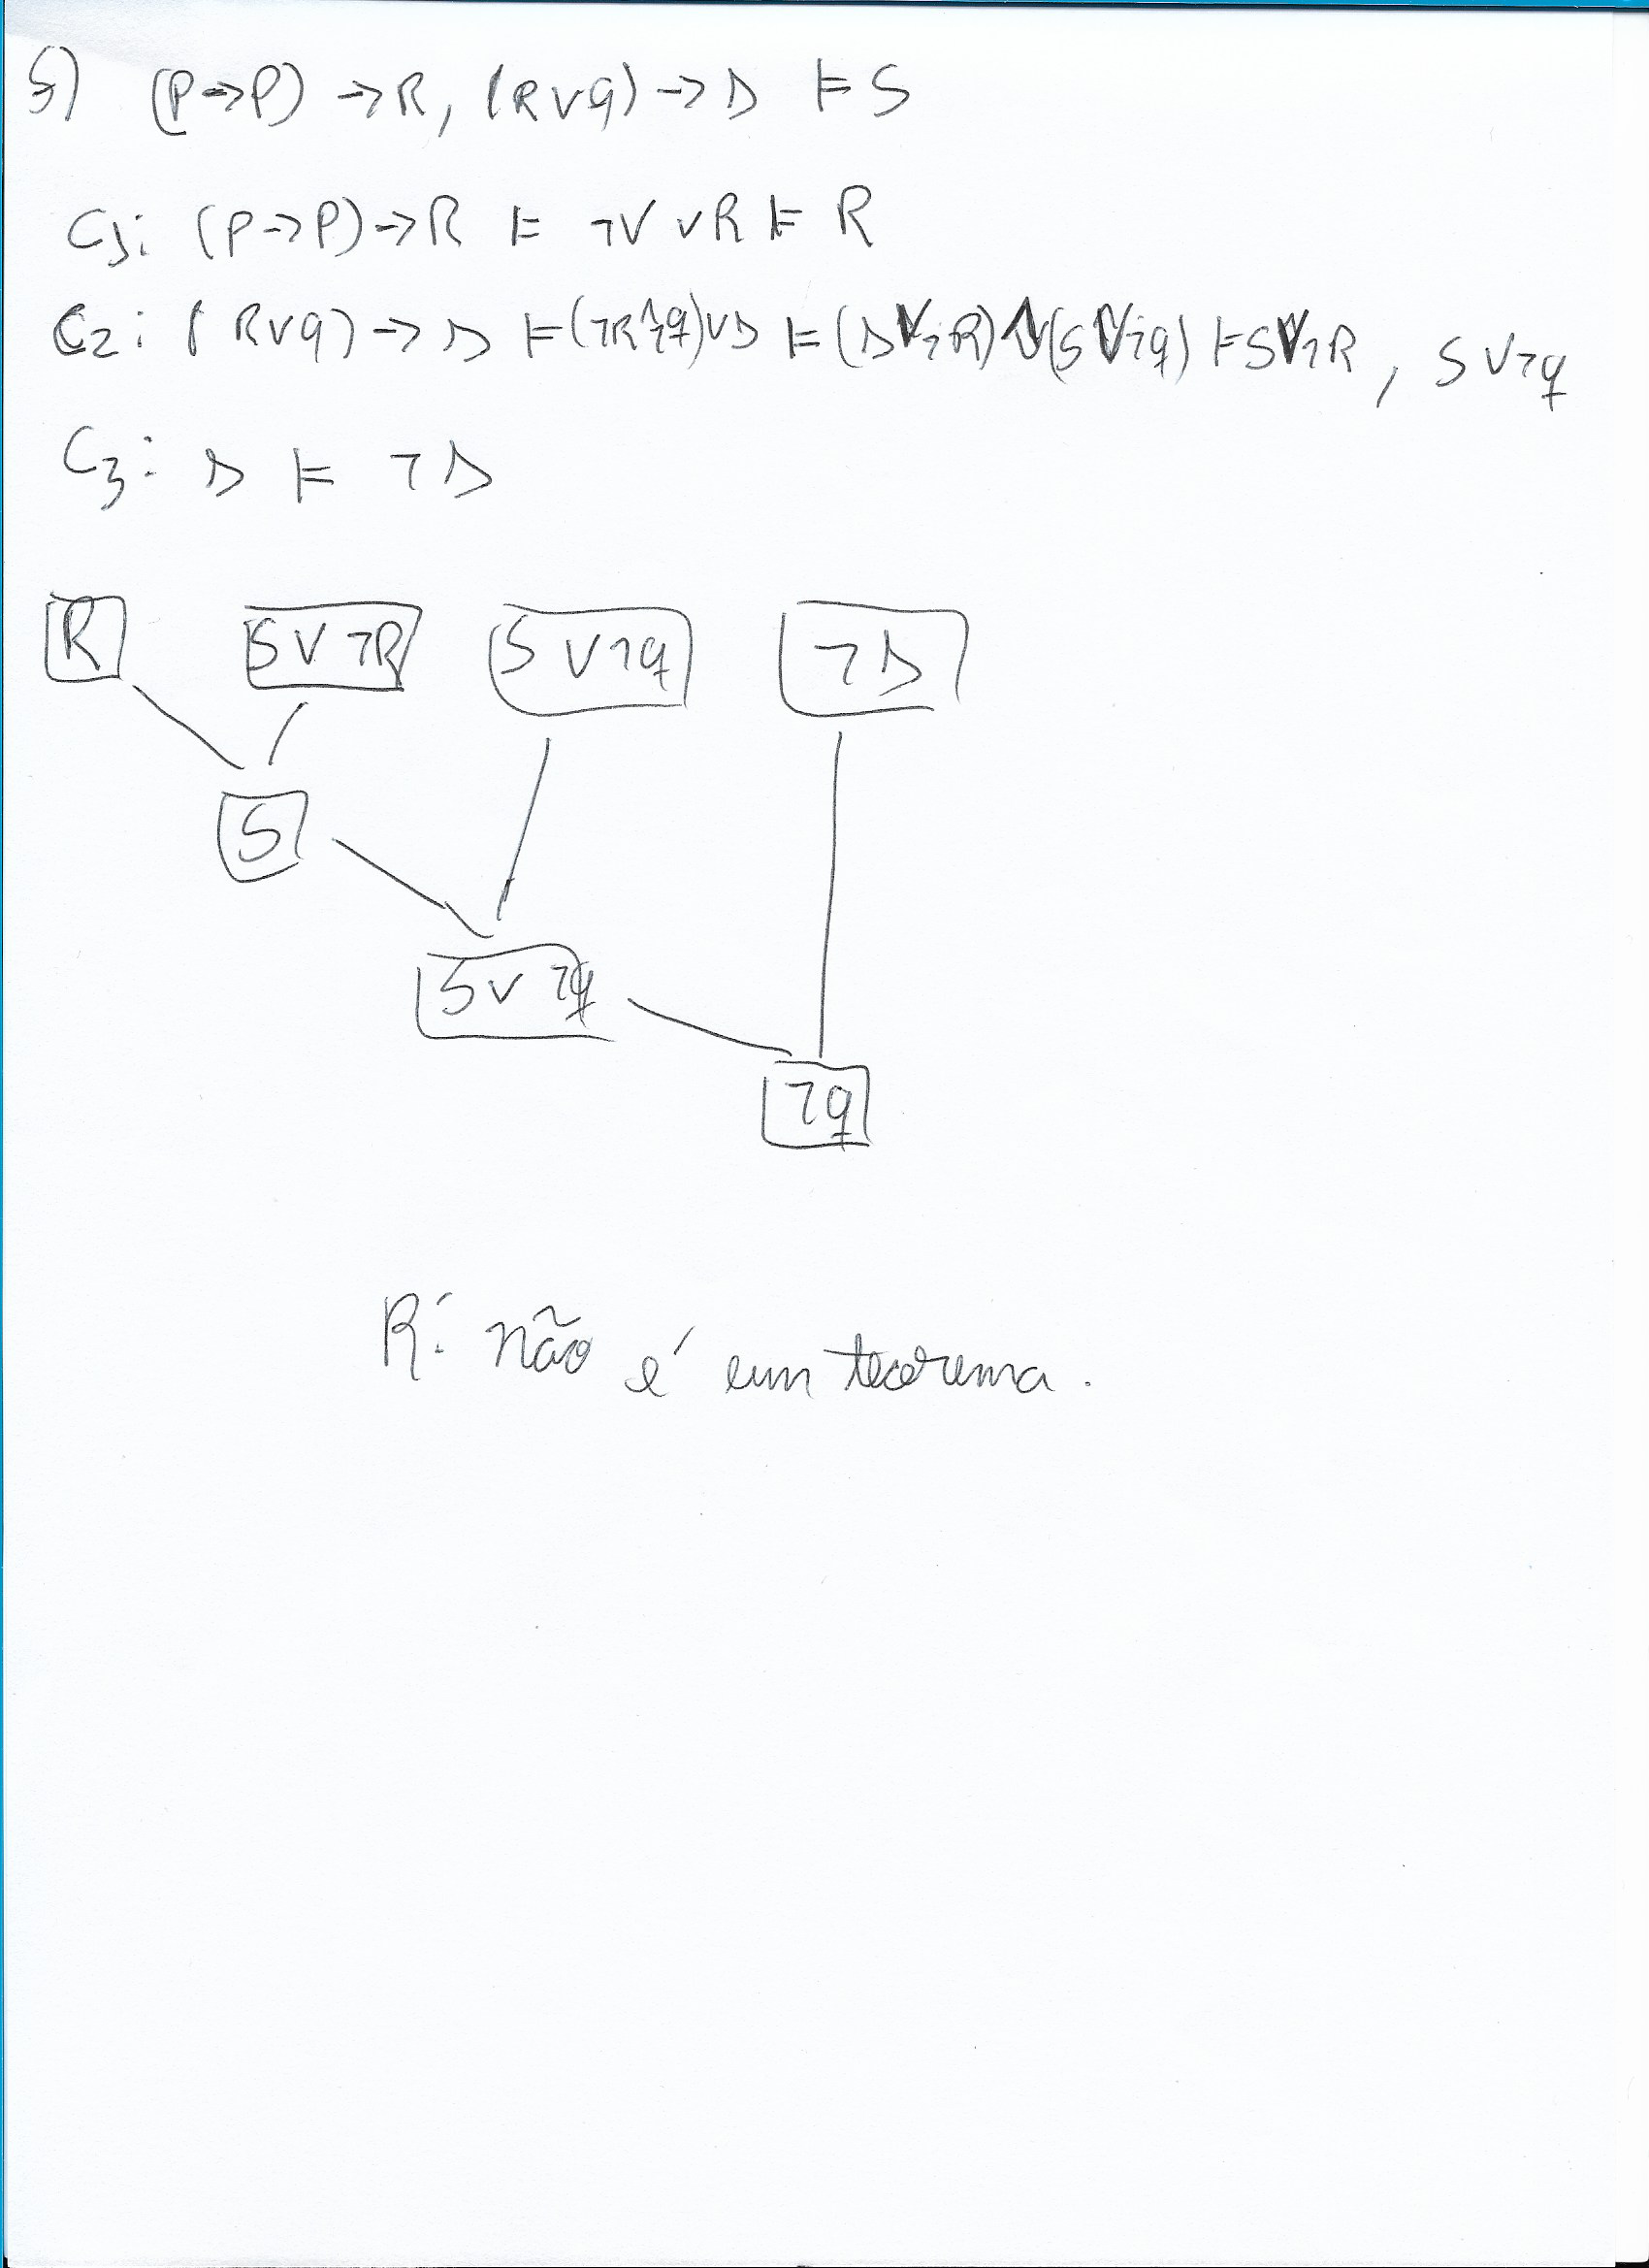 5) (P→P) →R, (R∨q) → s ⊨ S
C1: (P→P)→R ⊨ ¬V ∨R ⊨ R
C2: (R∨q) → s ⊨ (¬R∧¬q)∨s ⊨ (s∨¬R)∧(S∨¬q) ⊨ S∨¬R, S∨¬q
C3: s ⊨ ¬s
R S∨¬R S∨¬q ¬s
S
S∨¬q
¬q
R: não é um teorema.